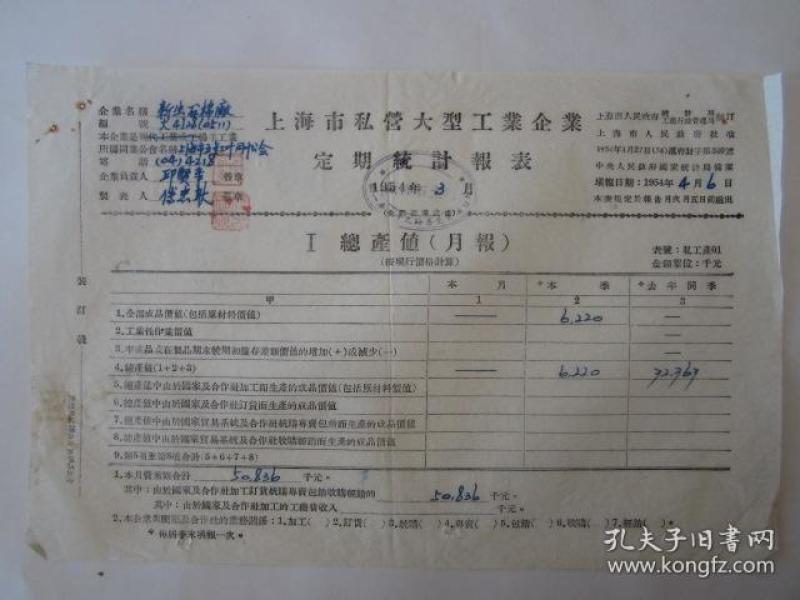 企業名稱
編號 火4128(0511)
所屬同業公會名稱
電話 (04)4218
企業負責人 蓋章
製表人 蓋章
上海市私營大型工業企業
定期統計報表
1954年3月
上海市人民政府
上海市人民政府批准
中央人民政府國家統計局備案
填報日期：1954年4月6日
I 總產値(月報)
(按現行價格計算)
表號：私工產01
金額單位：千元
裝訂線
甲 本月 *本季 *去年同季
1 2 3
1.全部成品價值(包括原材料價值) — 6.220 —
2.工業性作業價值 —
3.半成品及在製品期末較期初結存差額價值的增加(+)或減少(—) —
4.總產值(1+2+3) — 6.220 32.363
5.總產值中由於國家及合作社加工而生產的成品價值(包括原材料價值)
6.總產值中由於國家及合作社訂貨而生產的成品價值
7.總產值中由於國家貿易系統及合作社統購專賣包銷而生產的成品價值
8.總產值中由於國家貿易系統及合作社收購經銷而生產的成品價值
9.第5項至第8項合計(5+6+7+8)
1.本月營業額合計 50.836 千元。
其中：由於國家及合作社加工訂貨統購專賣包銷收購經銷的 50.836 千元。
其中：由於國家及合作社加工的工繳費收入 千元。
2.本企業與國家及合作社的業務關係：1.加工( ) 2.訂貨( ) 3.統購( ) 4.專賣( ) 5.包銷( ) 6.收購( ) 7.經銷( )。
*每屆季末填報一次。
孔夫子旧书网
www.kongfz.com